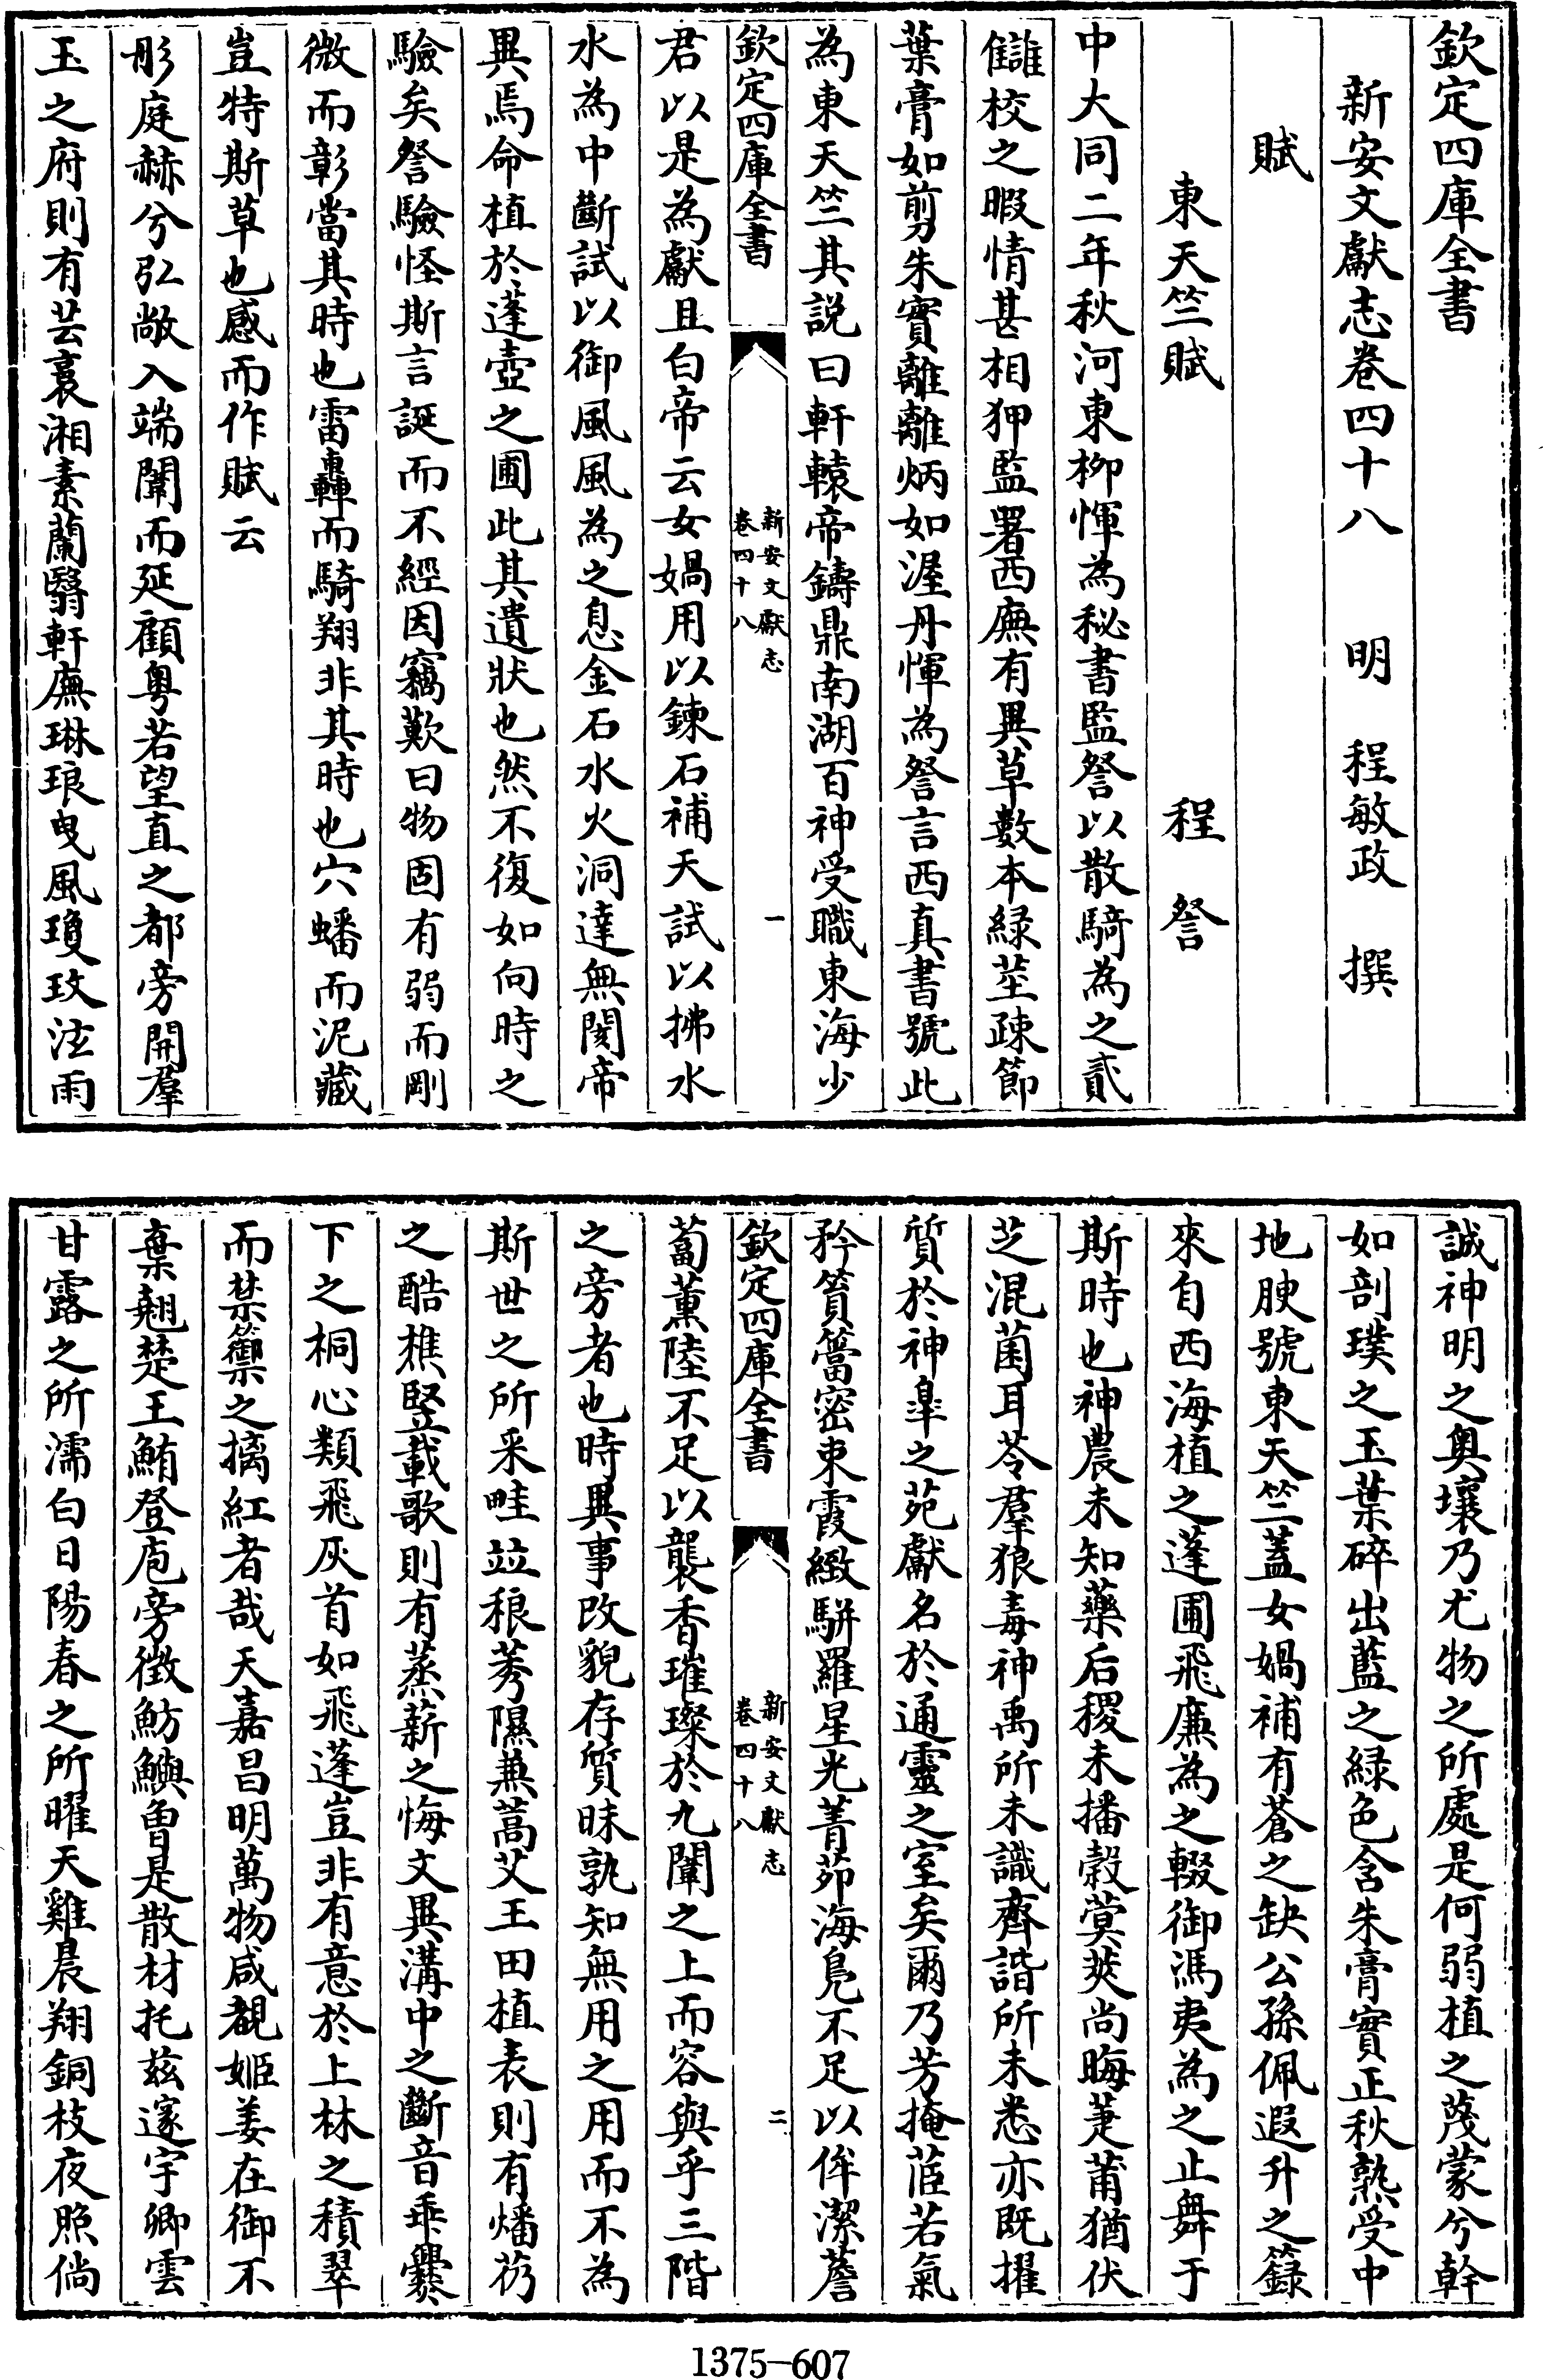 欽定四庫全書
新安文獻志卷四十八　明　程敏政　撰
賦
東天竺賦　程詧
中大同二年秋河東柳惲為秘書監詧以散騎為之貳
讎校之暇情甚相狎監署西廡有異草數本緑莖疎節
葉膏如剪朱實離離炳如渥丹惲為詧言西真書號此
為東天竺其説曰軒轅帝鑄鼎南湖百神受職東海少
欽定四庫全書
新安文獻志
卷四十八
一
君以是為獻且白帝云女媧用以鍊石補天試以拂水
水為中斷試以御風風為之息金石水火洞達無閡帝
異焉命植於蓬壺之圃此其遺狀也然不復如向時之
驗矣詧驗怪斯言誕而不經因竊歎曰物固有弱而剛
微而彰當其時也雷轟而騎翔非其時也穴蟠而泥藏
豈特斯草也感而作賦云
彤庭赫兮弘敞入端闈而延顧粵若望直之都旁開羣
玉之府則有芸裛湘素蘭翳軒廡琳琅曳風瓊玫泫雨
誠神明之奥壤乃尤物之所處是何弱植之薎蒙兮幹
如剖璞之玉葉碎出藍之緑色含朱膏實正秋熟受中
地腴號東天竺蓋女媧補有蒼之缺公孫佩遐升之籙
來自西海植之蓬圃飛廉為之輟御馮夷為之止舞于
斯時也神農未知藥后稷未播穀蓂莢尚晦萐莆猶伏
芝混菌耳苓羣狼毒神禹所未識齊諧所未悉亦既擢
質於神臯之苑獻名於通靈之室矣爾乃芳掩茝若氣
矜篔簹密束霞緻駢羅星光菁茆海鳬不足以侔潔薝
欽定四庫全書
新安文獻志
卷四十八
二
蔔薰陸不足以襲香璀璨於九闈之上而容與乎三階
之旁者也時異事改貌存質昧孰知無用之用而不為
斯世之所采畦竝稂莠隰兼蒿艾王田植表則有燔芿
之酷樵豎載歌則有蒸薪之悔文異溝中之斷音乖爨
下之桐心類飛灰首如飛蓬豈非有意於上林之積翠
而禁籞之摛紅者哉天嘉昌明萬物咸覩姬姜在御不
棄翹楚王鮪登庖旁徴魴鱮曽是散材托兹邃宇卿雲
甘露之所濡白日陽春之所曜天雞晨翔銅枝夜照倘
1375-607